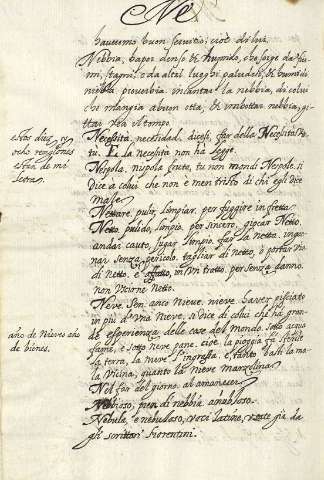 Ne
haueremo buon seruitio; cioè di lui.
Nebbia, vapor denso di humido, che sorge da fiu-
mi, stagni, o da altri luoghi paludosi, di
nebbia prouerbio incantar la nebbia, di colui
che mangia a buon otta, di imbottar nebbia, gi-
ttar via il tempo.
Necessità, necesidad, dicesi, far della Necessità Vir-
tu. E la necessità non ha legge.
Nespola, nispola fruto, tu non mondi Nespole. si
dice a colui che non è men tristo di chi egli dice
male.
Nettare, pulir, limpiar. per fuggire in fretta
Netto, pulido, limpio, per sincero, giocar Netto.
andar cauto, lugar limpio, far la netta. ingan-
nar senza pericolo. tagliar di netto, o portar via
di netto, è affatto, in Un tratto, per senza danno.
non Uscirne netto.
Neve. Sen. anco Nieve. nieve. haver pisciato
in più d'Una Nieve, si dice di colui che ha gran-
de esperienza delle cose del Mondo. sotto acqua
fame, e sotto neve pane. cioè, la pioggia fa sterile
la terra, la nieve l'ingrassa, e tanto basti la ma-
la Vicina, quanto la nieve marzollina.
Nel far del giorno. al amanecer.
Nebbioso, pien di nebbia anublado.
Nebula, e nebuloso, voci latine, usate già da
gli scrittori fiorentini.
estos diez y
ocho renglones
estan de mi
letra
año de Nieves año
de bienes.